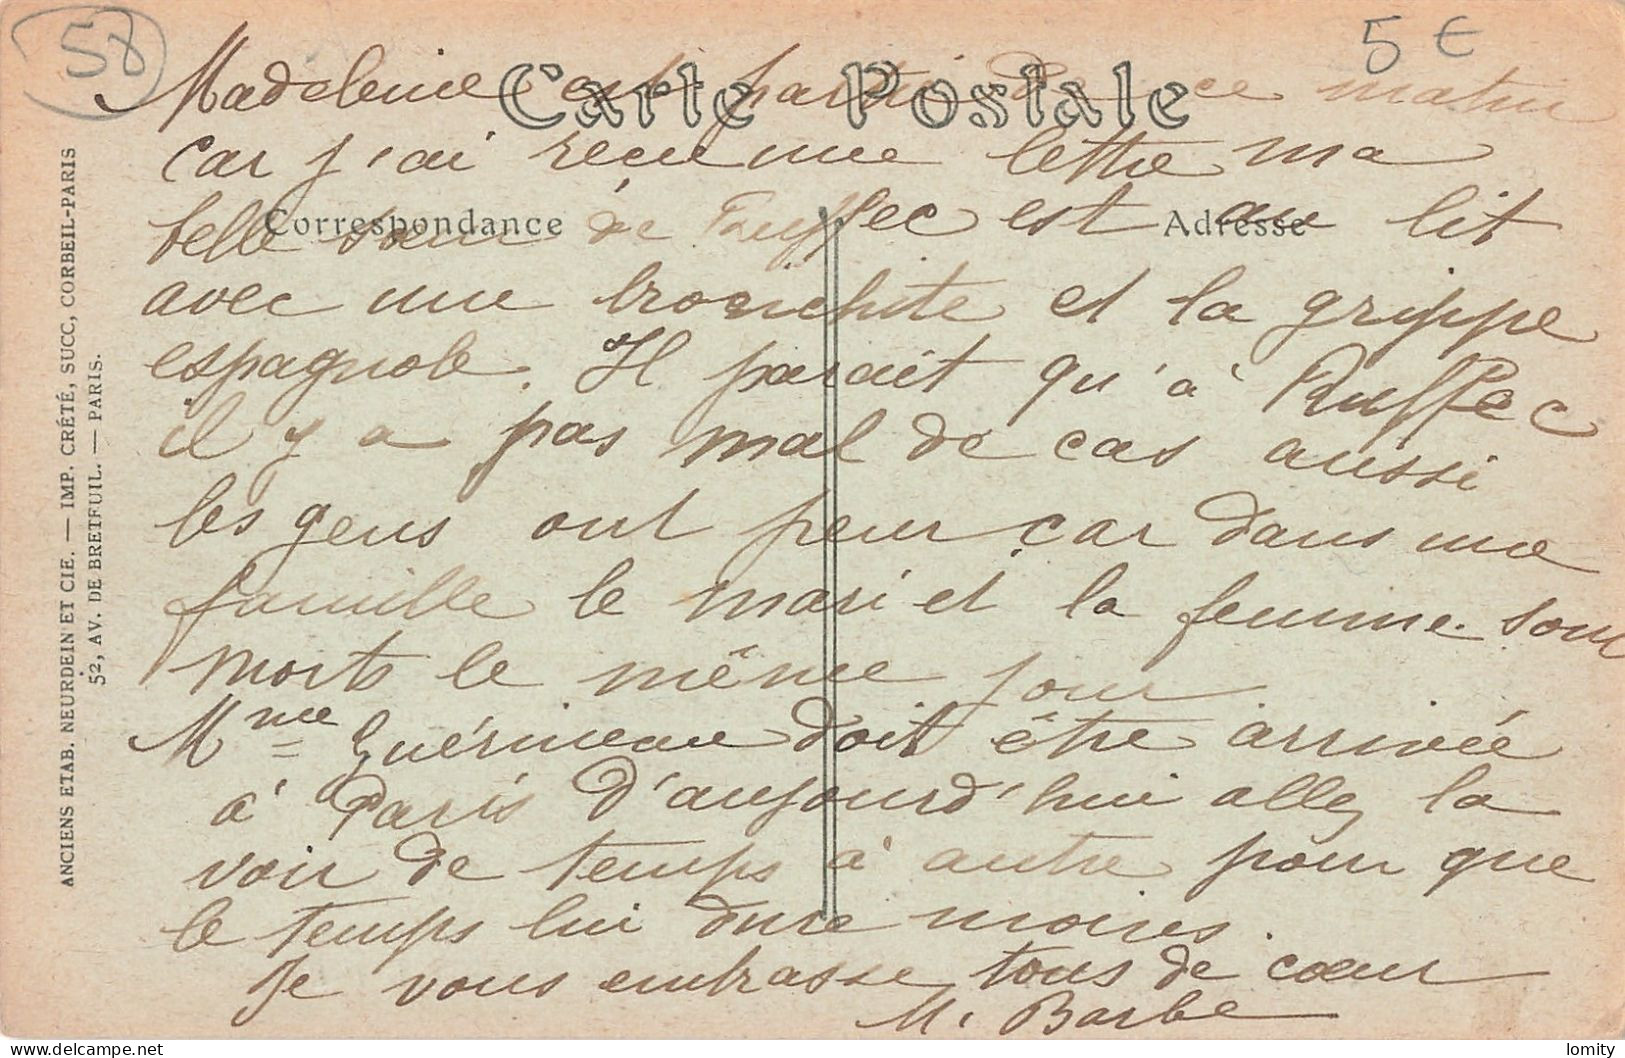 58
5 €
Carte Postale
Madeleine est partie ce matin
car j'ai reçu une lettre ma
Correspondance
Adresse
belle sœur de Ruffec est au lit
avec une bronchite et la grippe
espagnole. Il parait qu'à Ruffec
il y a pas mal de cas aussi
les gens ont peur car dans une
famille le mari et la femme sont
morts le même jour
Mme Guérineau doit être arrivée
à Paris d'aujourd'hui allez la
voir de temps à autre pour que
le temps lui dure moins.
Je vous embrasse tous de cœur
M. Barbe
ANCIENS ETAB. NEURDEIN ET CIE. — IMP. CRÉTÉ, SUCC, CORBEIL-PARIS
52, AV. DE BRETEUIL. — PARIS.
© delcampe.net
lomity